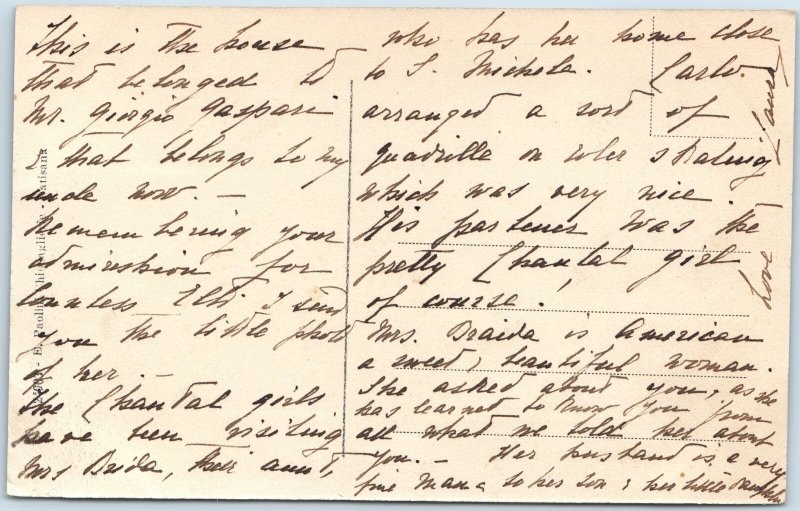 This is the house
that belonged to
Mr. Giorgio Gaspari
& that belongs to my
uncle now. —
Remembering your
admireshion for
Countess Elti I send
you the little photo
of her. —
The Chantal girls
have been visiting
Mrs Braida, their aunt,
who has her home close
to S. Michele. Carlo
arranged a sort of
quadrille on roler skating
which was very nice.
His partener was the
pretty Chantal girl
of course!
Mrs. Braida is American
a sweet, beautiful woman.
She asked about you, as she
has learned to know you from
all what we told her about
you. — Her husband is a very
fine man & so her son & her little daughter
Love Laura
E. Paolini
Latisana